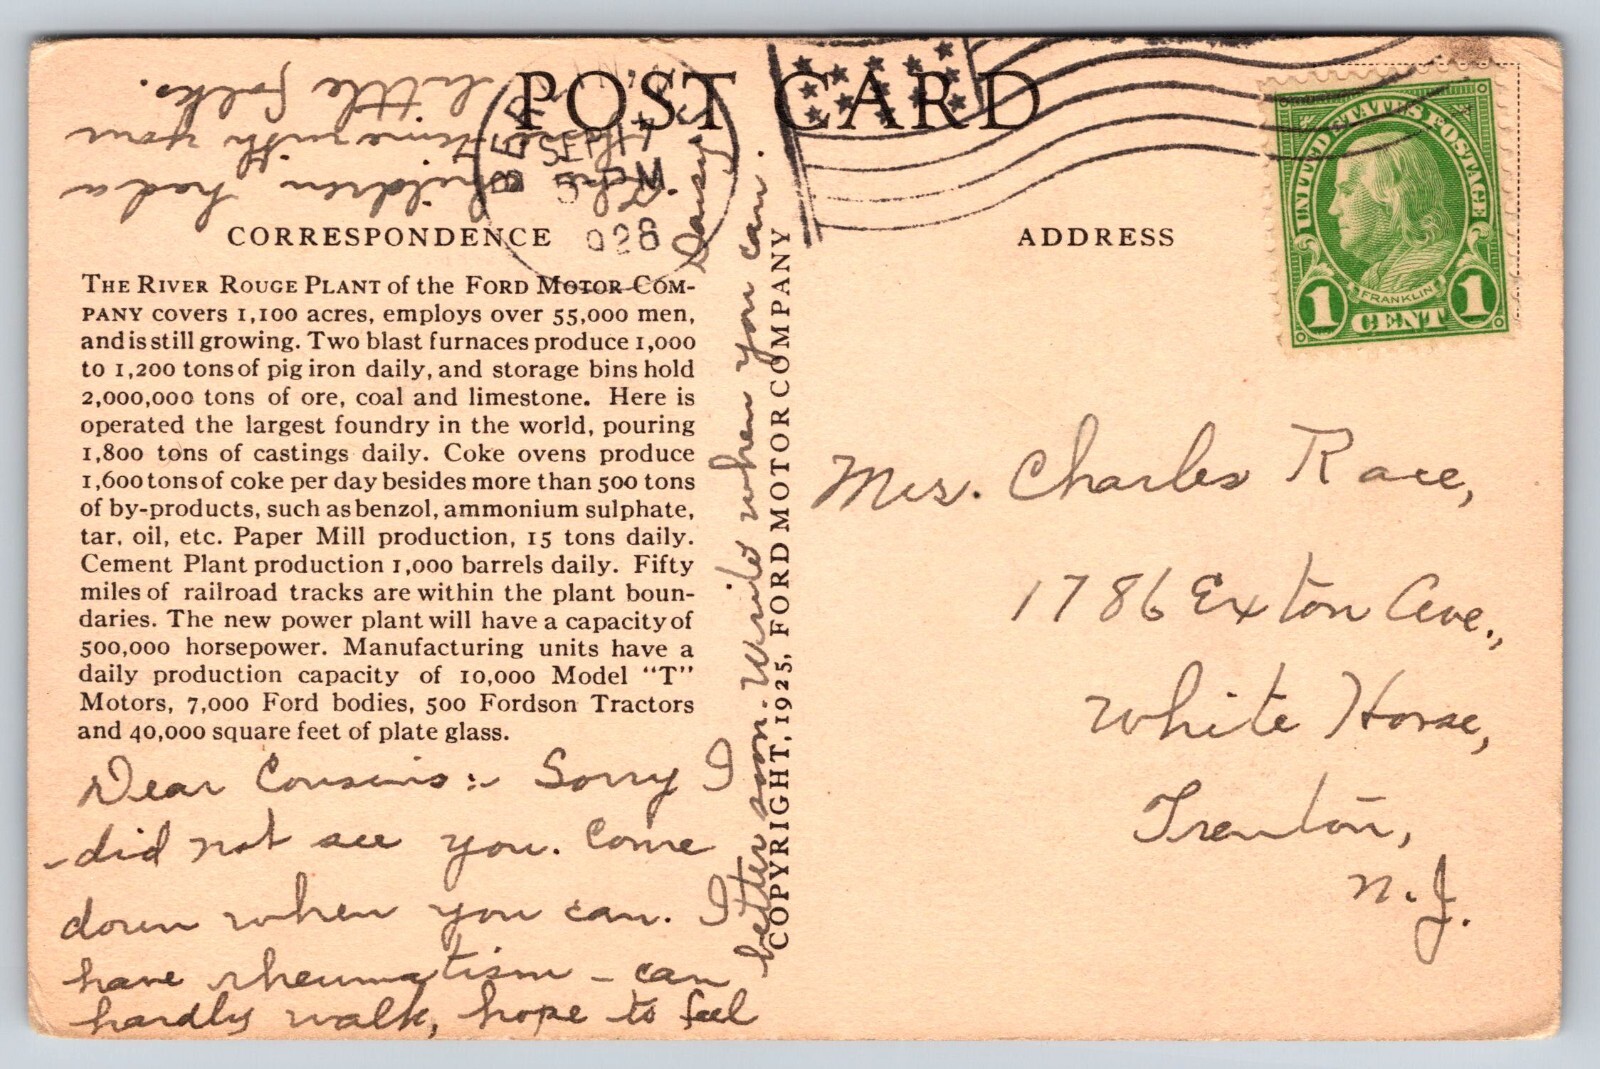 POST CARD
BE
SEP 17
5-PM
1928
CORRESPONDENCE
ADDRESS
UNITED STATES POSTAGE
FRANKLIN
1 CENT 1
THE RIVER ROUGE PLANT of the FORD MOTOR COM-
PANY covers 1,100 acres, employs over 55,000 men,
and is still growing. Two blast furnaces produce 1,000
to 1,200 tons of pig iron daily, and storage bins hold
2,000,000 tons of ore, coal and limestone. Here is
operated the largest foundry in the world, pouring
1,800 tons of castings daily. Coke ovens produce
1,600 tons of coke per day besides more than 500 tons
of by-products, such as benzol, ammonium sulphate,
tar, oil, etc. Paper Mill production, 15 tons daily.
Cement Plant production 1,000 barrels daily. Fifty
miles of railroad tracks are within the plant boun-
daries. The new power plant will have a capacity of
500,000 horsepower. Manufacturing units have a
daily production capacity of 10,000 Model "T"
Motors, 7,000 Ford bodies, 500 Fordson Tractors
and 40,000 square feet of plate glass.
Dear Cousins:- Sorry I
did not see you. Come
down when you can. I
have rheumatism - can
hardly walk, hope to feel
better soon. Write when you can.
Daisy
The children had a
time with your
little folks.
COPYRIGHT, 1925, FORD MOTOR COMPANY
Mrs. Charles Race,
1786 Exton Ave.,
White Horse,
Trenton,
N.J.